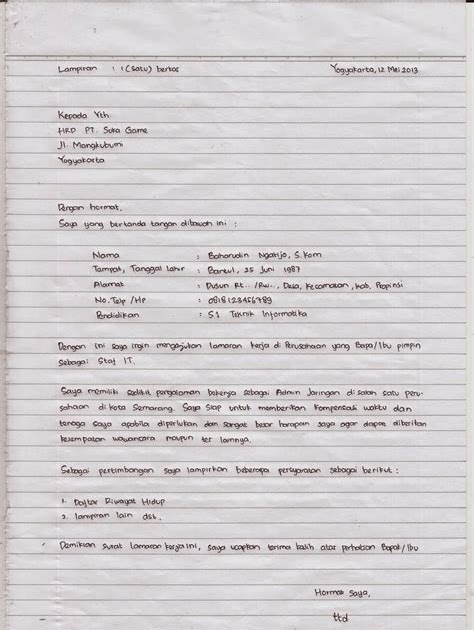 Lampiran : 1 (satu) berkas Yogyakarta, 12 Mei 2013
Kepada Yth.
HRD PT. Suka Game
Jl. Mangkubumi
Yogyakarta
Dengan hormat,
Saya yang bertanda tangan dibawah ini :
Nama : Baharudin Ngatijo, S.Kom
Tempat, Tanggal lahir : Bantul, 25 Juni 1987
Alamat : Dusun Rt.. /Rw.., Desa, Kecamatan, Kab, Propinsi
No. Telp /HP : 0818123456789
Pendidikan : S1 Teknik Informatika
Dengan ini saya ingin mengajukan lamaran kerja di Perusahaan yang Bapa/Ibu pimpin
sebagai Staf IT.
Saya memiliki sedikit pengalaman bekerja sebagai Admin Jaringan di salah satu peru-
sahaan di kota Semarang. Saya siap untuk memberikan kompensasi waktu dan
tenaga saya apabila diperlukan dan sangat besar harapan saya agar dapat diberikan
kesempatan wawancara maupun tes lainnya.
Sebagai pertimbangan saya lampirkan beberapa persyaratan sebagai berikut :
1. Daftar Riwayat Hidup
2. lampiran lain dst.
Demikian surat lamaran kerja ini, saya ucapkan terima kasih atas perhatian Bapak/Ibu
Hormat Saya,
ttd